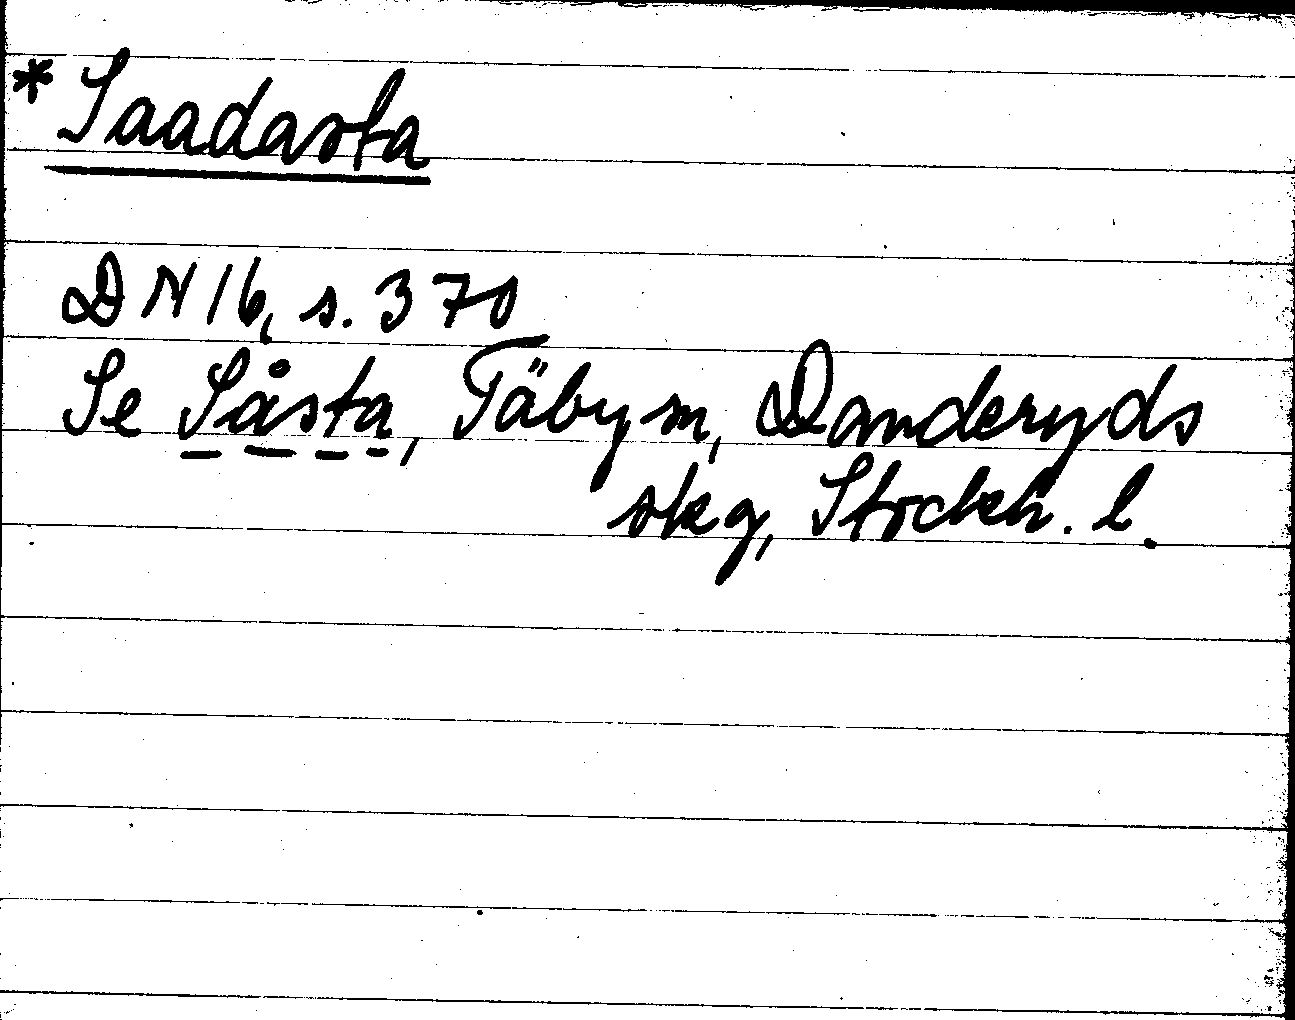 * Saadasta
DN 16, s. 370
Se Såsta, Täby sn, Danderyds
skg, Stockh. l.